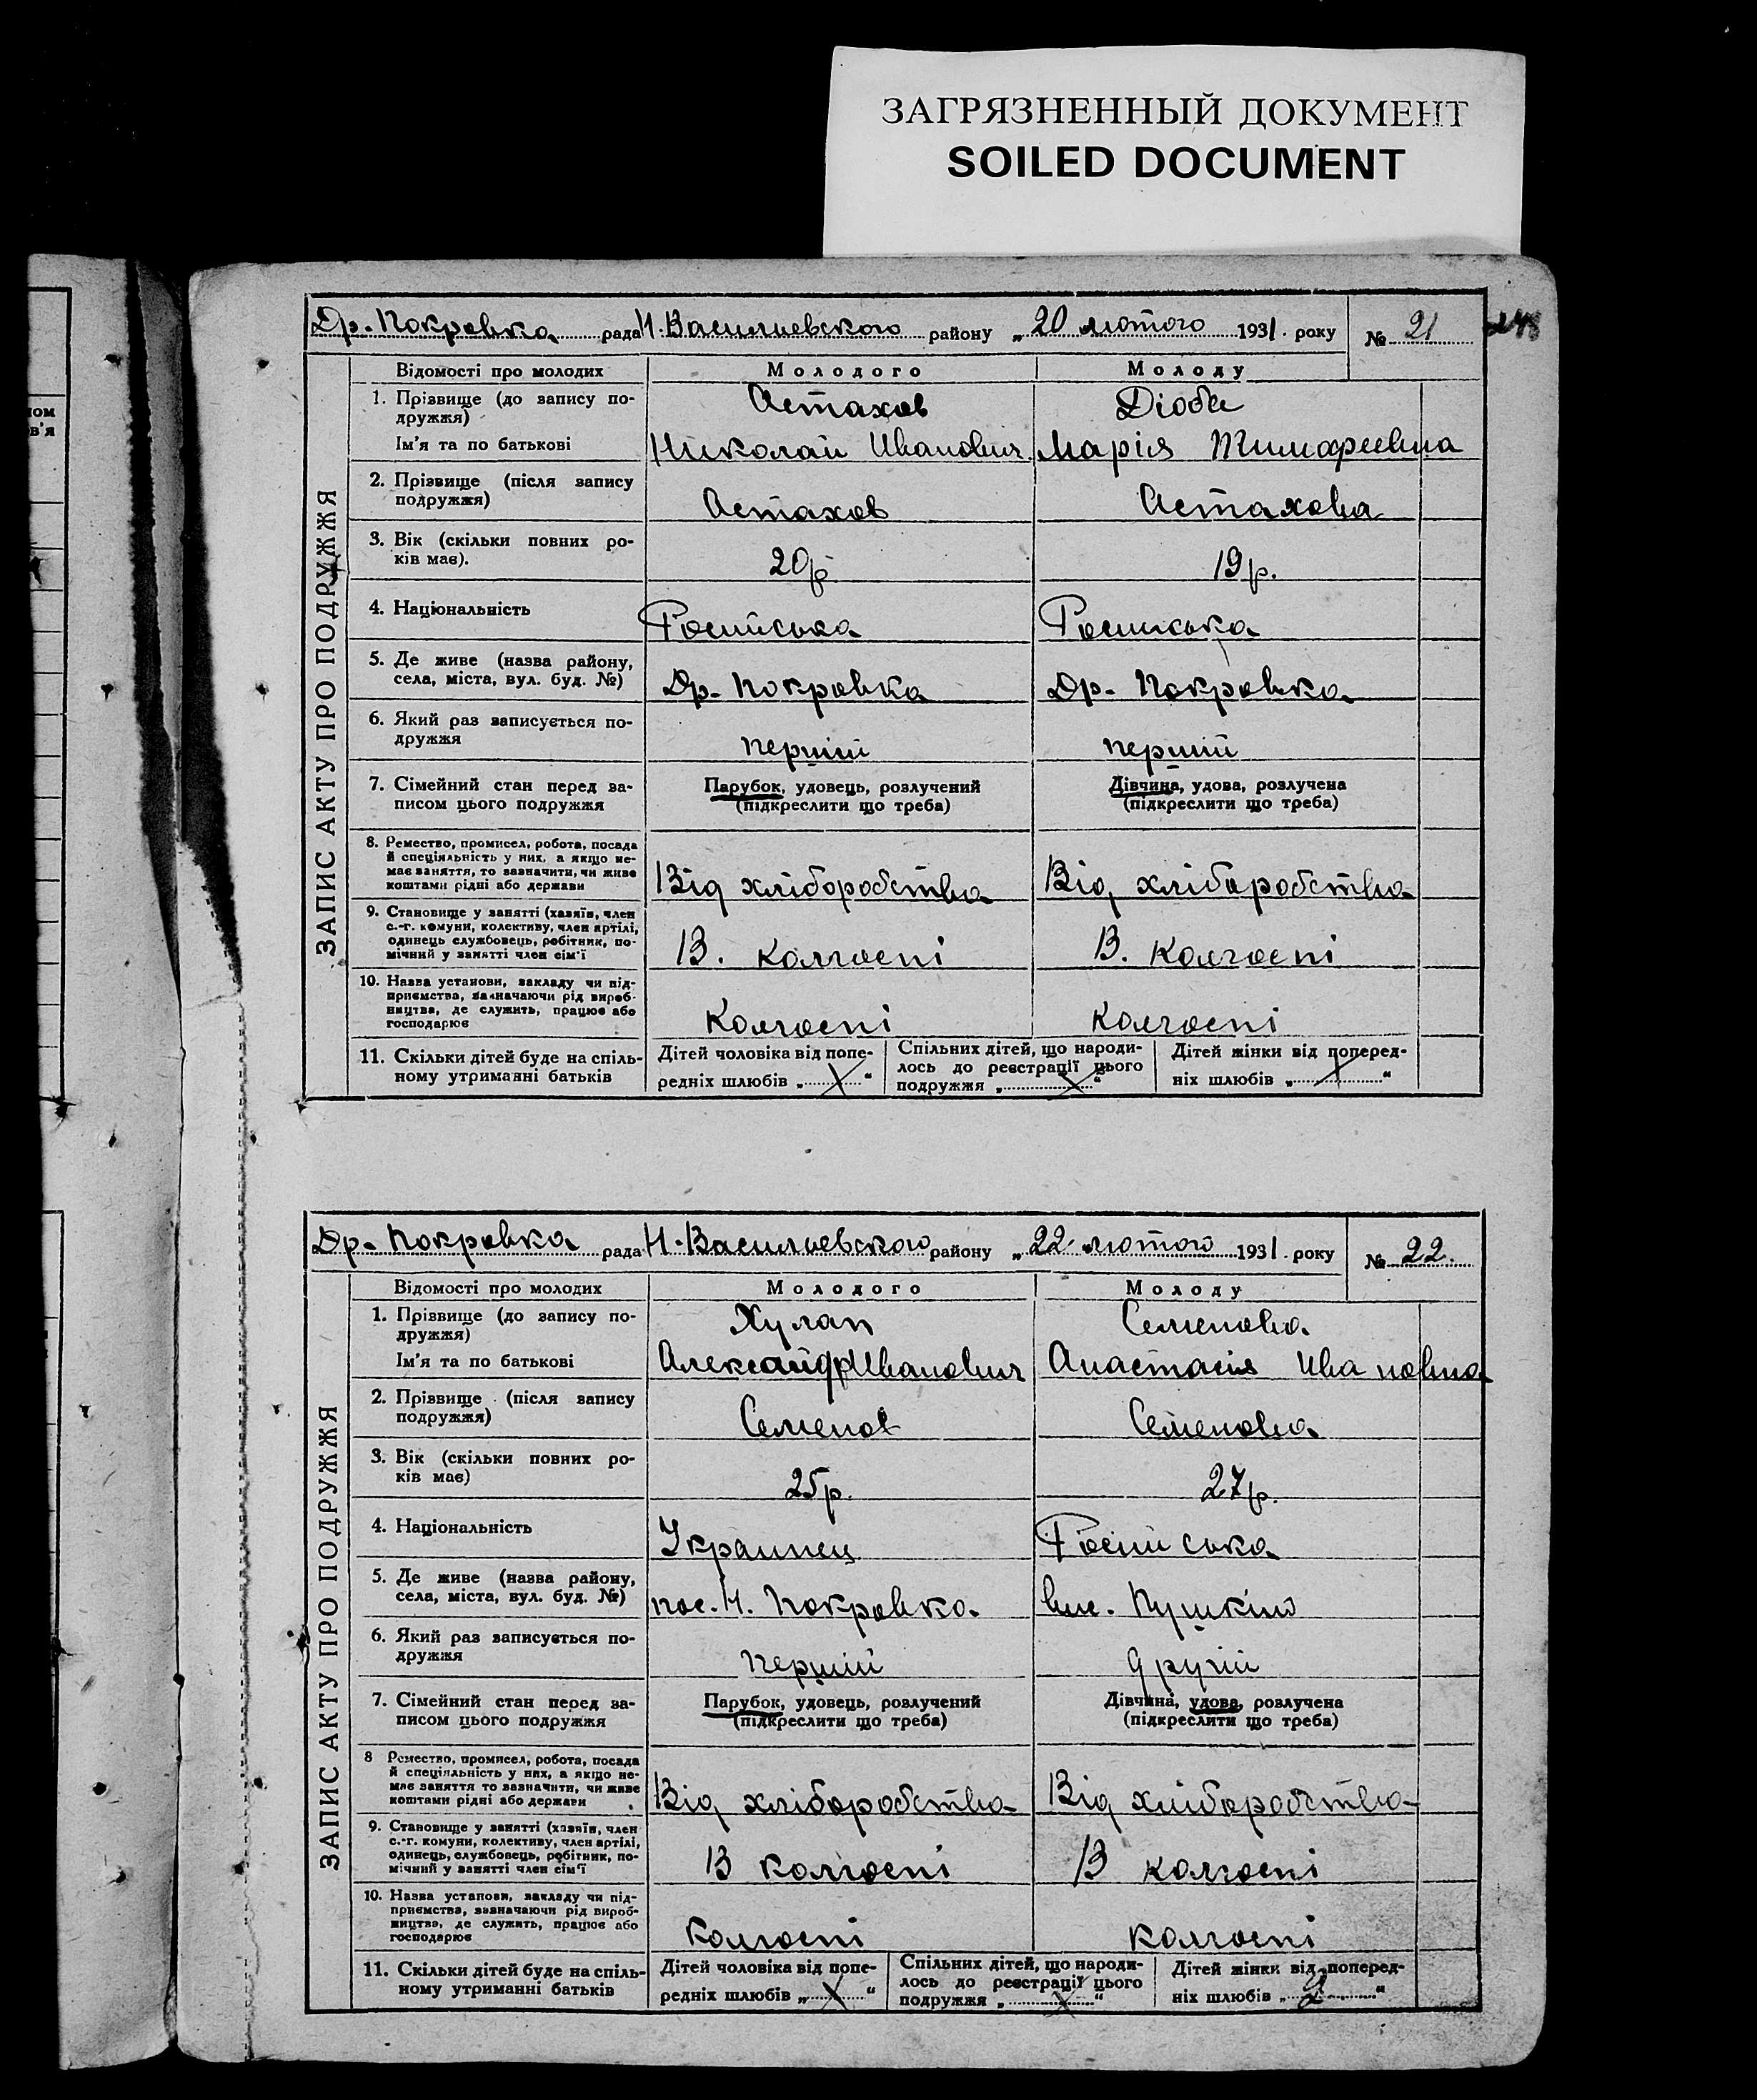 ЗАГРЯЗНЕННЫЙ ДОКУМЕНТ
SOILED DOCUMENT
Др. Покровка рада Н. Васильевского району „20 лютого 1931. року № 21
ЗАПИС АКТУ ПРО ПОДРУЖЖЯ
Відомості про молодих Молодого Молоду
1. Прізвище (до запису по- Астахов Дзюба
дружжя)
Ім'я та по батькові Николай Иванович Марія Тимофеевна
2. Прізвище (після запису
подружжя) Астахов Астахова
3. Вік (скільки повних ро-
ків має). 20р. 19р.
4. Національність Росийська Росииська
5. Де живе (назва району,
села, міста, вул. буд. №) Др. Покровка Др. Покровка
6. Який раз записується по-
дружжя перший перший
7. Сімейний стан перед за- Парубок, удовець, розлучений Дівчина, удова, розлучена
писом цього подружжя (підкреслити що треба) (підкреслити що треба)
8. Ремество, промисел, робота, посада
й спеціяльність у них, а якщо не-
має заняття, то зазначити, чи живе
коштами рідні або держави Від хліборобства Від хліборобства
9. Становище у занятті (хазяїн, член
с.-г. комуни, колективу, член артілі,
одинець службовець, робітник, по-
мічний у занятті член сім'ї В. колгоспі В. колгоспі
10. Назва установи, закладу чи під-
приємства, зазначаючи рід вироб-
ництва, де служить, працює або
господарює Колгоспі Колгоспі
11. Скільки дітей буде на спіль- Дітей чоловіка від попе- Спільних дітей, що народи- Дітей жінки від поперед-
ному утриманні батьків редніх шлюбів „ X “ лось до реєстрації цього ніх шлюбів „ X “
подружжя „ X “
Др. Покровка рада Н. Васильевского району „22 лютого 1931. року № 22.
ЗАПИС АКТУ ПРО ПОДРУЖЖЯ
Відомості про молодих Молодого Молоду
1. Прізвище (до запису по- Хулап Семенова
дружжя)
Ім'я та по батькові Александр Иванович Анастасія Ивановна
2. Прізвище (після запису
подружжя) Семенов Семенова
3. Вік (скільки повних ро-
ків має) 25р. 27р.
4. Національність Украинец Росийська
5. Де живе (назва району,
села, міста, вул. буд. №) пос. Н. Покровка вис. Пушкіно
6. Який раз записується по-
дружжя перший другий
7. Сімейний стан перед за- Парубок, удовець, розлучений Дівчина, удова, розлучена
писом цього подружжя (підкреслити що треба) (підкреслити що треба)
8 Ремество, промисел, робота, посада
й спеціяльність у них, а якщо не-
має заняття то зазначити, чи живе
коштами рідні або держави Від хліборобства Від хліборобства
9. Становище у занятті (хазяїн, член
с.-г. комуни, колективу, член артілі,
одинець, службовець, робітник, по-
мічний у занятті член сім'ї В колгоспі В колгоспі
10. Назва установи, закладу чи під-
приємства, зазначаючи рід вироб-
ництва, де служить, працює або
господарює Колгоспі Колгоспі
11. Скільки дітей буде на спіль- Дітей чоловіка від попе- Спільних дітей, що народи- Дітей жінки від поперед-
ному утриманні батьків редніх шлюбів „ X “ лось до реєстрації цього ніх шлюбів „ 2 “
подружжя „ X “